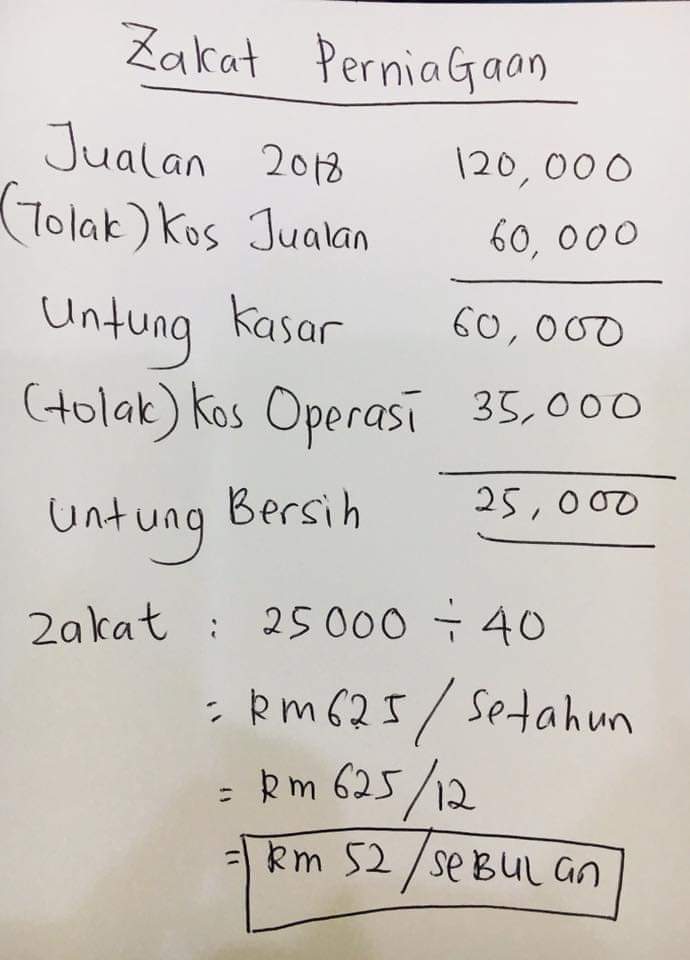 Zakat PerniaGaan
Jualan 2018 120,000
(Tolak) Kos Jualan 60,000
Untung Kasar 60,000
(tolak) Kos Operasi 35,000
Untung Bersih 25,000
Zakat : 25000 ÷ 40
= Rm 625 / Setahun
= Rm 625 / 12
= Rm 52 / SEBULan